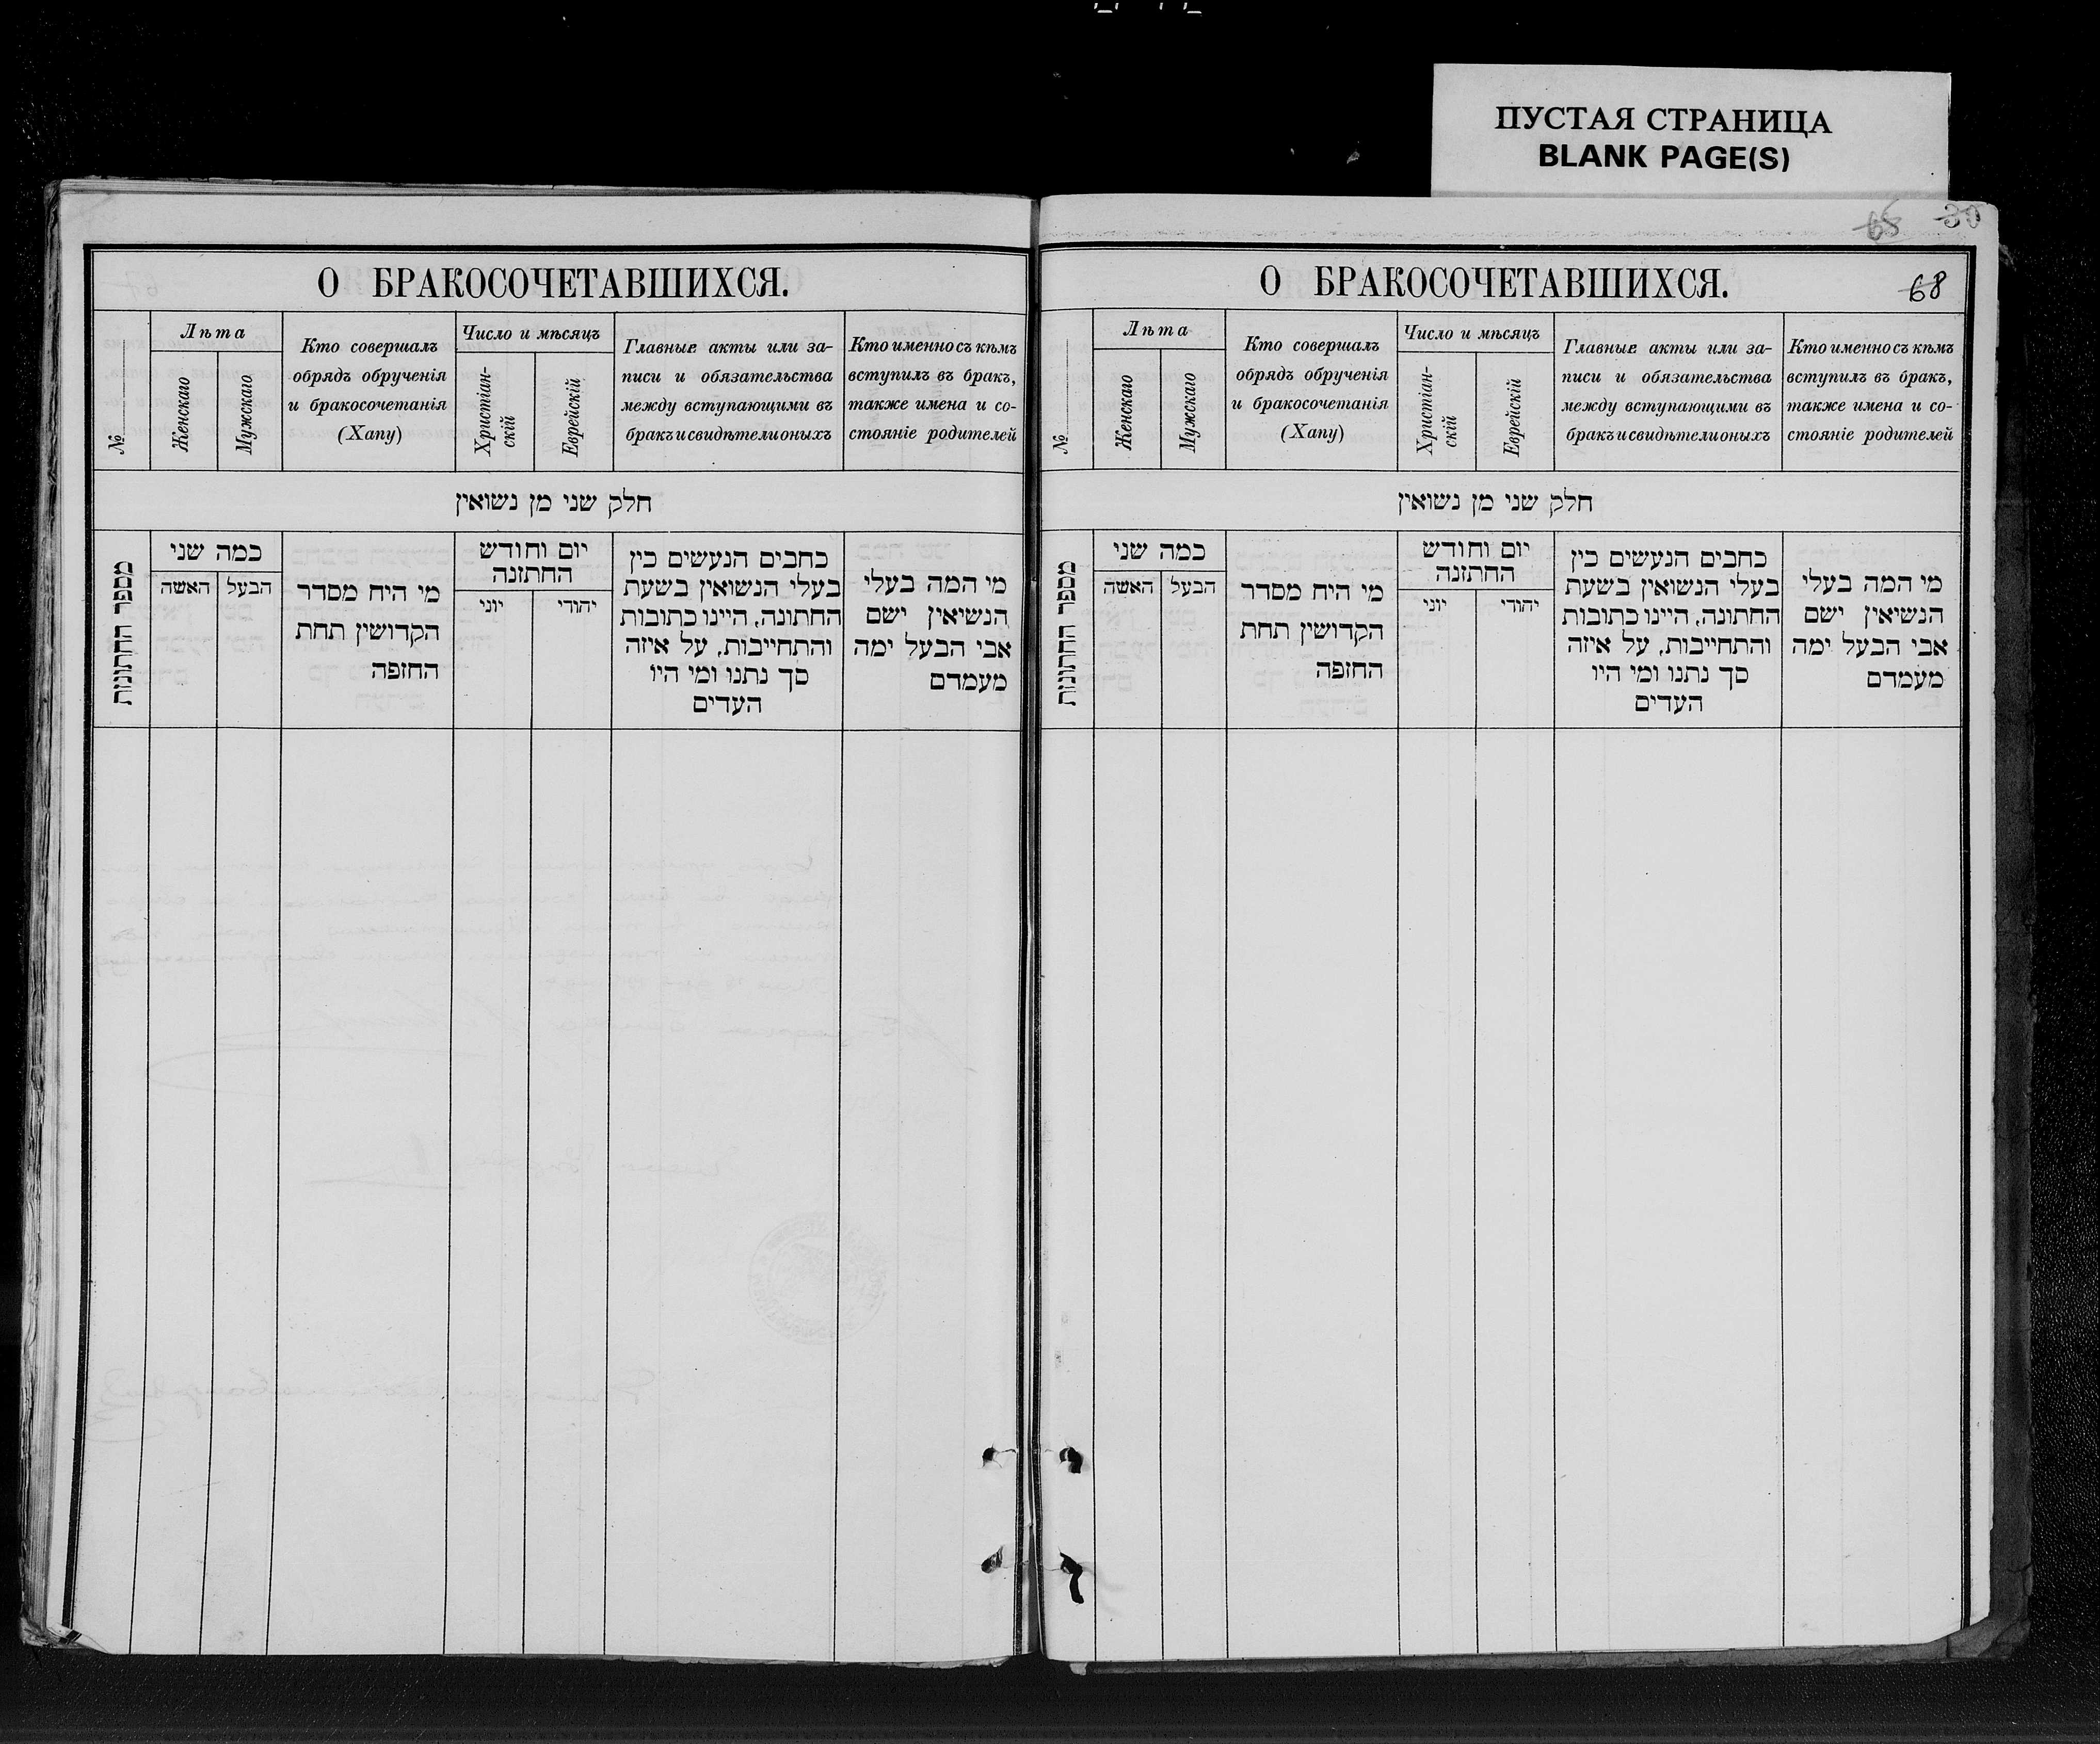 ПУСТАЯ СТРАНИЦА
BLANK PAGE(S)
О БРАКОСОЧЕТАВШИХСЯ.
№
Лѣта
Женскаго
Мужскаго
Кто совершалъ
обрядъ обрученія
и бракосочетанія
(Хапу)
Число и мѣсяцъ
Христіан-
скій
Еврейскій
Главные акты или за-
писи и обязательства
между вступающими въ
бракъ и свидѣтели оныхъ
Кто именно съ кѣмъ
вступилъ въ бракъ,
также имена и со-
стояніе родителей
חלק שני מן נשואין
מספר החתונות
כמה שני
האשה
הבעל
מי היח מסדר
הקדושין תחת
החזפה
יום וחודש
החתזנה
יוני
יהודי
כחבים הנעשים כין
בעלי הנשואין בשעת
החתונה, היינו כתובות
והתחייבות, על איזה
סך נתנו ומי היו
העדים
מי המה בעלי
הנשיאין ישם
אבי הבעל ימה
מעמדם
68
О БРАКОСОЧЕТАВШИХСЯ.
№
Лѣта
Женскаго
Мужскаго
Кто совершалъ
обрядъ обрученія
и бракосочетанія
(Хапу)
Число и мѣсяцъ
Христіан-
скій
Еврейскій
Главные акты или за-
писи и обязательства
между вступающими въ
бракъ и свидѣтели оныхъ
Кто именно съ кѣмъ
вступилъ въ бракъ,
также имена и со-
стояніе родителей
חלק שני מן נשואין
מספר החתונות
כמה שני
האשה
הבעל
מי היח מסדר
הקדושין תחת
החזפה
יום וחודש
החתזנה
יוני
יהודי
כחבים הנעשים כין
בעלי הנשואין בשעת
החתונה, היינו כתובות
והתחייבות, על איזה
סך נתנו ומי היו
העדים
מי המה בעלי
הנשיאין ישם
אבי הבעל ימה
מעמדם